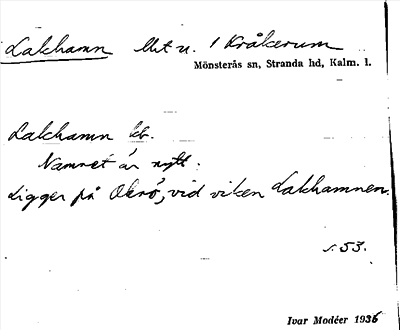 Lakhamn lht u. 1 Kråkerum
Mönsterås sn, Stranda hd, Kalm. l.
Lakhamn lht.
Namnet är nytt.
Ligger på Oknö, vid viken Lakhamnen.
s. 53.
Ivar Modéer 1936